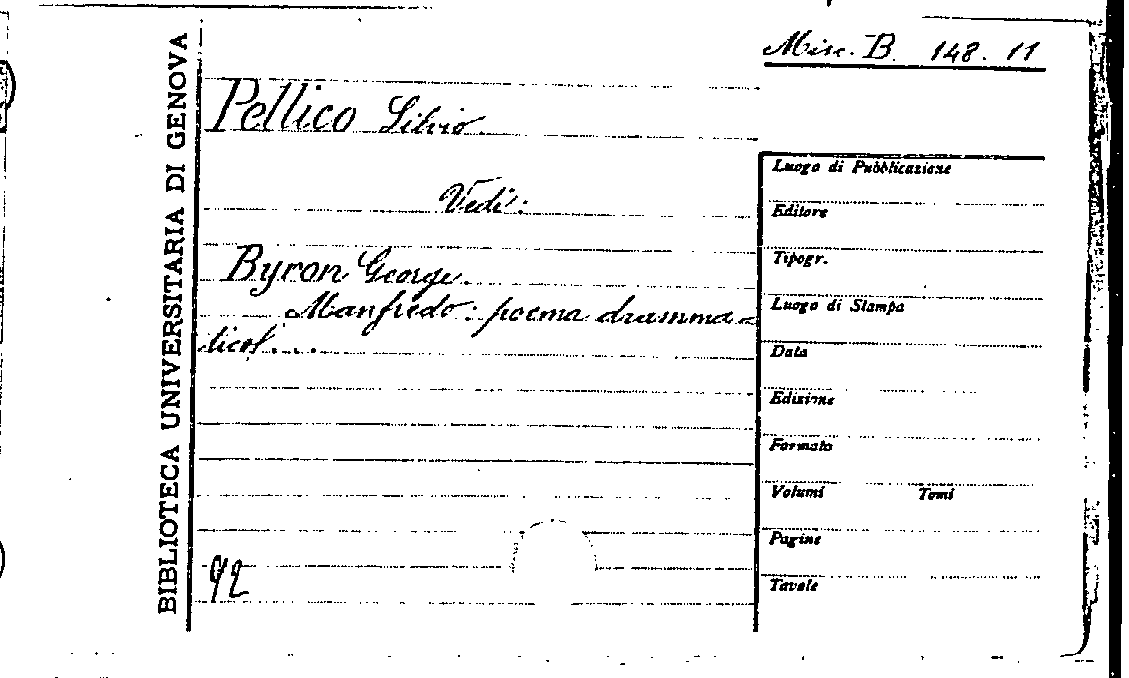 BIBLIOTECA UNIVERSITARIA DI GENOVA
Misc. B. 148. 11
Pellico Silvio.
Vedi:
Byron George.
Manfredo: poema dramma=
tico. . . .
92
Luogo di Pubblicazione
Editore
Tipogr.
Luogo di Stampa
Data
Edizione
Formato
Volumi Tomi
Pagine
Tavole